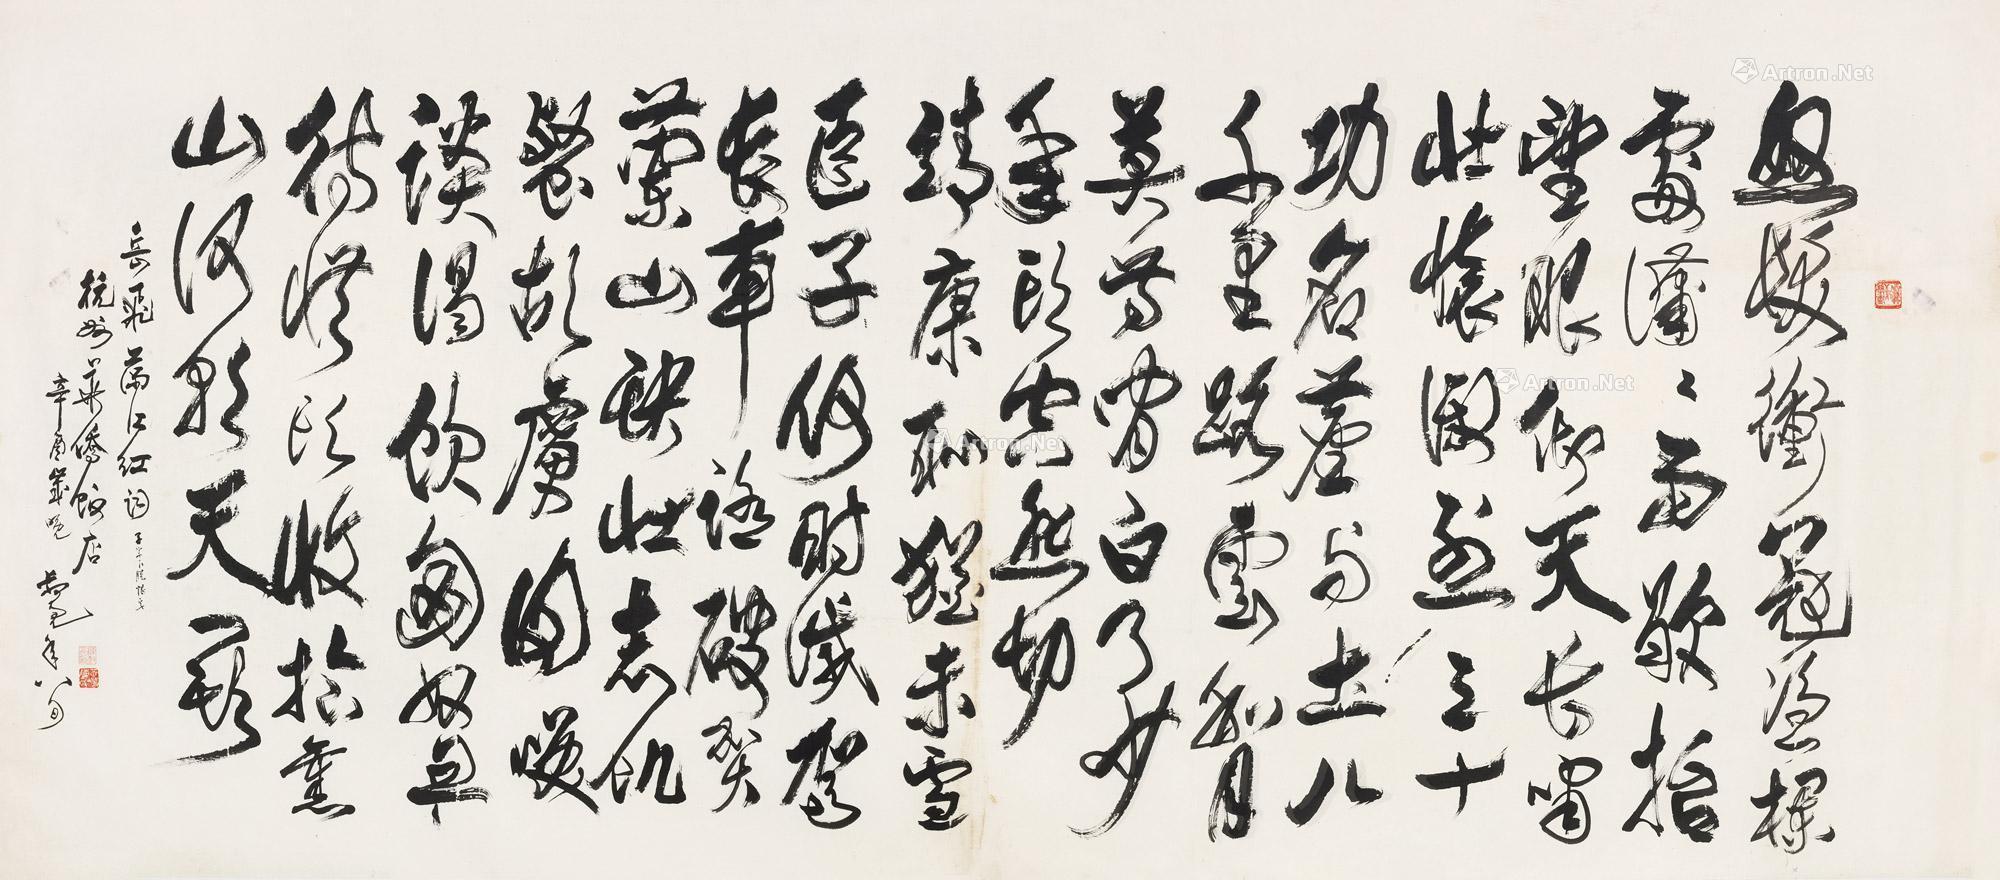 怒髮衝冠憑欄
處瀟瀟雨歇抬
望眼仰天長嘯
壯懷激烈三十
功名塵與土八
千里路雲和月
莫等閒白了少
年頭空悲切
靖康恥猶未雪
臣子何時滅駕
長車踏破賀
蘭山缺壯志飢
餐胡虜肉咲
談渴飲匈奴血
待從頭收拾舊
山河朝天闕
岳飛滿江紅詞 子字下脫恨字
杭州華僑飯店
辛酉歲晚 年八旬
Artron.Net
Artron.Net
Artron.Net